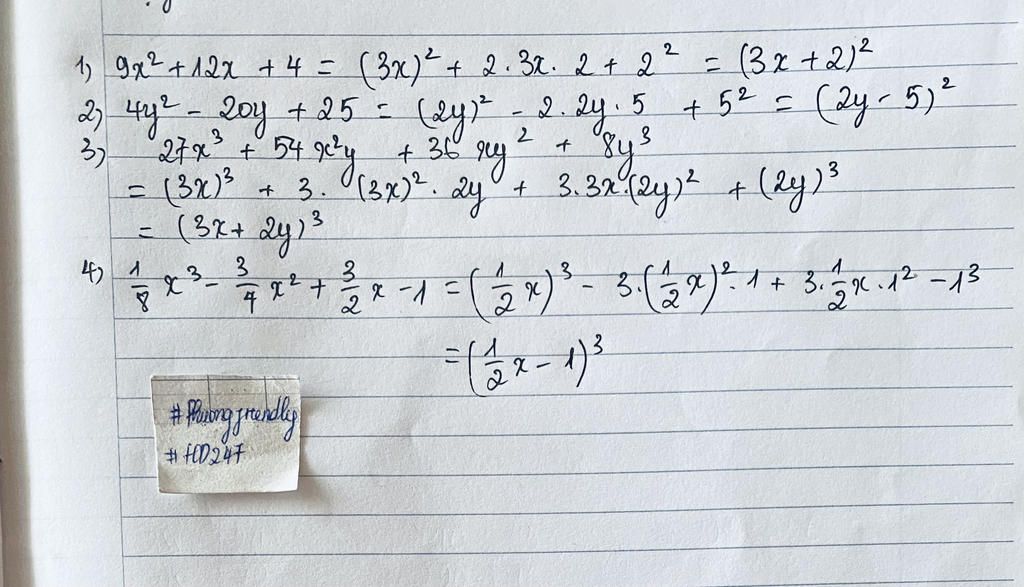 1) 9x² + 12x + 4 = (3x)² + 2.3x.2 + 2² = (3x + 2)²
2) 4y² - 20y + 25 = (2y)² - 2.2y.5 + 5² = (2y - 5)²
3) 27x³ + 54x²y + 36xy² + 8y³
= (3x)³ + 3.(3x)².2y + 3.3x.(2y)² + (2y)³
= (3x + 2y)³
4) 1/8 x³ - 3/4 x² + 3/2 x - 1 = (1/2 x)³ - 3.(1/2 x)².1 + 3.1/2 x.1² - 1³
= (1/2 x - 1)³
#Phuongfriendly
#HD247